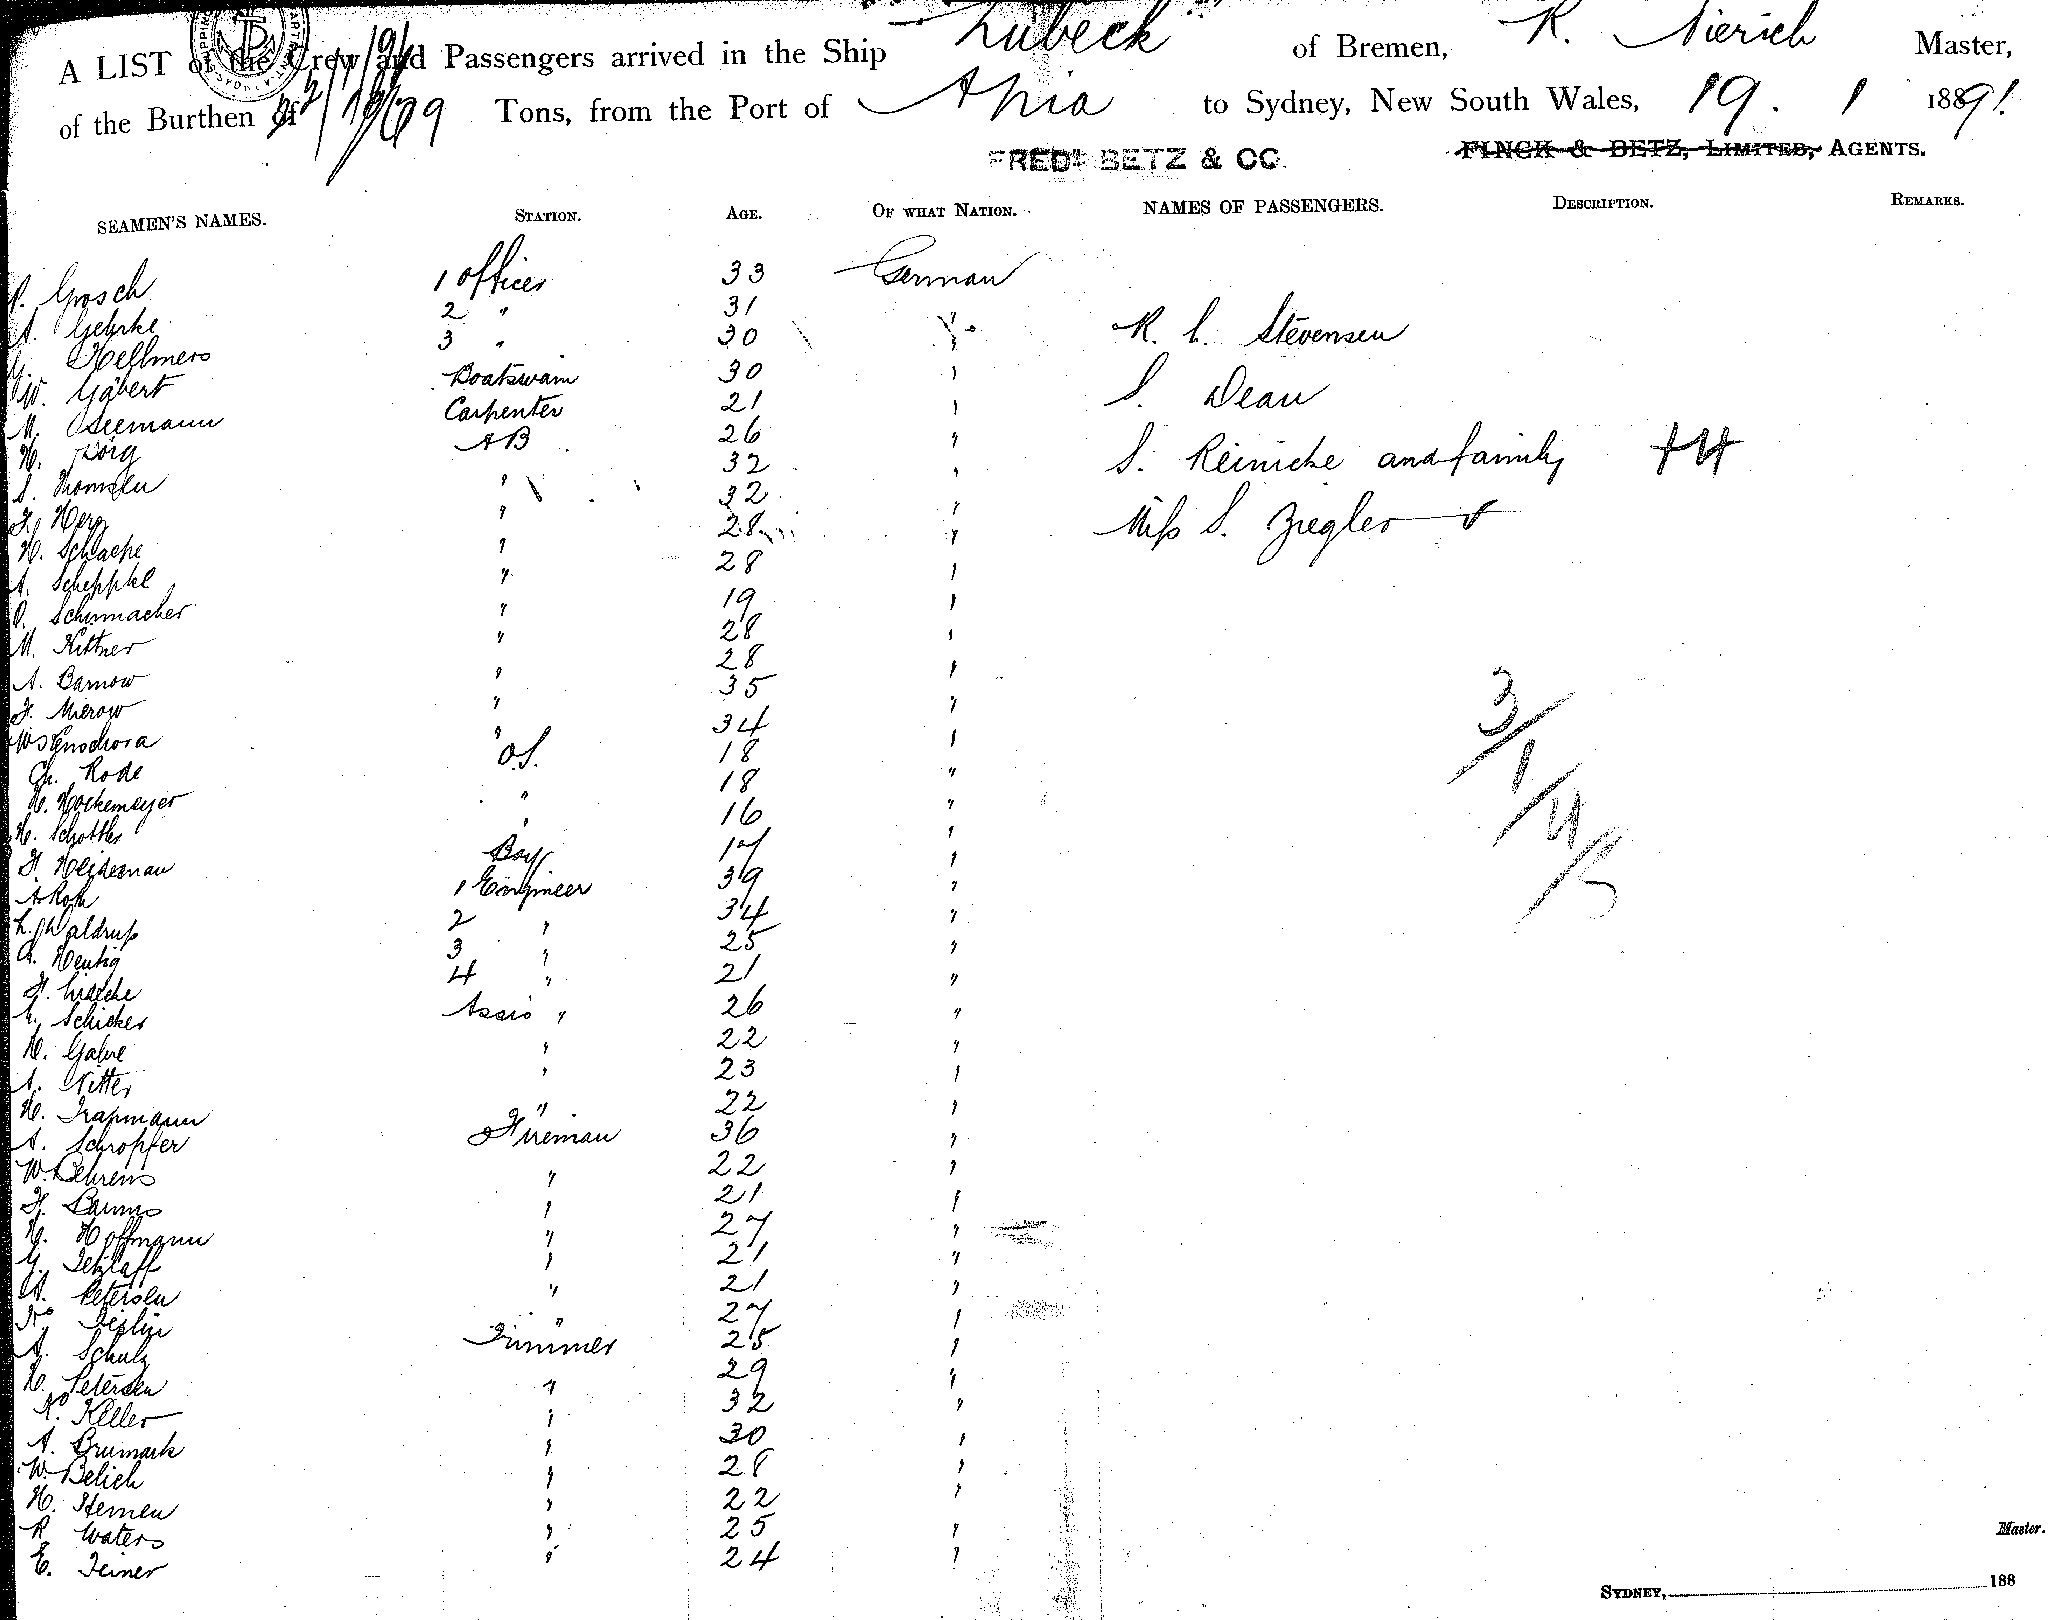 A LIST of the Crew and Passengers arrived in the Ship "Lübeck" of Bremen, R. Nierich Master,
of the Burthen of Tons, from the Port of Apia to Sydney, New South Wales, 19. 1 1891.
FREDK BETZ & CO. FINCK & BETZ, LIMITED, AGENTS.
SEAMEN'S NAMES. STATION. AGE. OF WHAT NATION. NAMES OF PASSENGERS. DESCRIPTION. REMARKS.
Grosch 1 Officer 33 German
A. Gehrke 2 " 31 "
Hellmers 3 " 30 " R. L. Stevensen
W. Gabert Boatswain 30 "
M. Oseemann Carpenter 21 " S. Dean
H. Dörg AB 26 "
S. Thomsen " 32 " S. Reinicke and family + 4
F. Herz " 32 "
H. Schlache " 28 " Miss S. Ziegler
A. Scheppke " 28 "
O. Schumacher " 19 "
M. Kittner " 28 "
A. Barnow " 28 "
F. Mierow " 35 "
" 34 "
Ch. Rode O.S. 18 "
H. Hockemeyer " 18 "
H. Schottler " 16 "
F. Heideman Boy 17 "
A Roth 1 Engineer 39 "
L. Waldrup 2 " 34 "
A. Hentig 3 " 25 "
4 " 21 "
Schicker Assis " 26 "
H. Gahre " 22 "
A. Nitter " 23 "
H. Trapmann " 22 "
A. Schropfer Fireman 36 "
W. Behrens " 22 "
F. " 21 "
H. Hoffmann " 27 "
G. Tetzlaff " 21 "
A. Petersen " 21 "
" 27 "
A. Schulz Trimmer 25 "
H. Petersen " 29 "
K. Keller " 32 "
A. Brumark " 30 "
W. Belich " 28 "
H. Hemen " 22 "
R Waters " 25 "
E. Teiner " 24 "
3/1/4/5
Master.
SYDNEY, 188